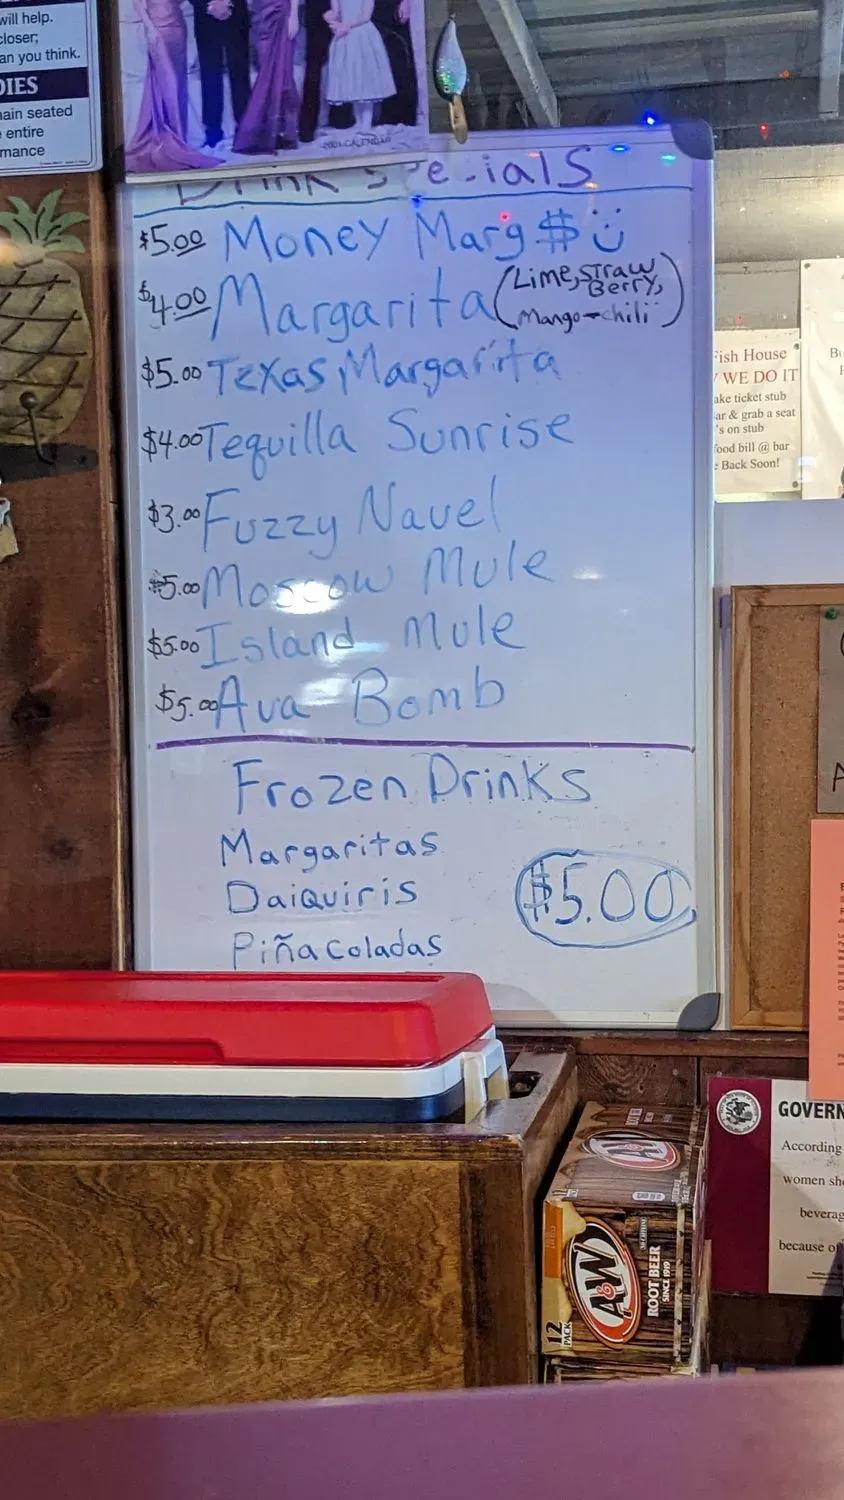 will help.
closer;
an you think.
DIES
main seated
entire
mance
2021 CALENDAR
Drink Specials
$5.00 Money Marg $ :)
$4.00 Margarita (Lime, Straw Berry, Mango-chili)
$5.00 Texas Margarita
$4.00 Tequilla Sunrise
$3.00 Fuzzy Navel
$5.00 Moscow Mule
$5.00 Island Mule
$5.00 Ava Bomb
Frozen Drinks
Margaritas
Daiquiris
$5.00
Piña Coladas
Fish House
WE DO IT
ake ticket stub
ar & grab a seat
's on stub
food bill @ bar
Back Soon!
A&W
ROOT BEER
SINCE 1919
12
PACK
GOVERN
According
women sho
beverag
because o